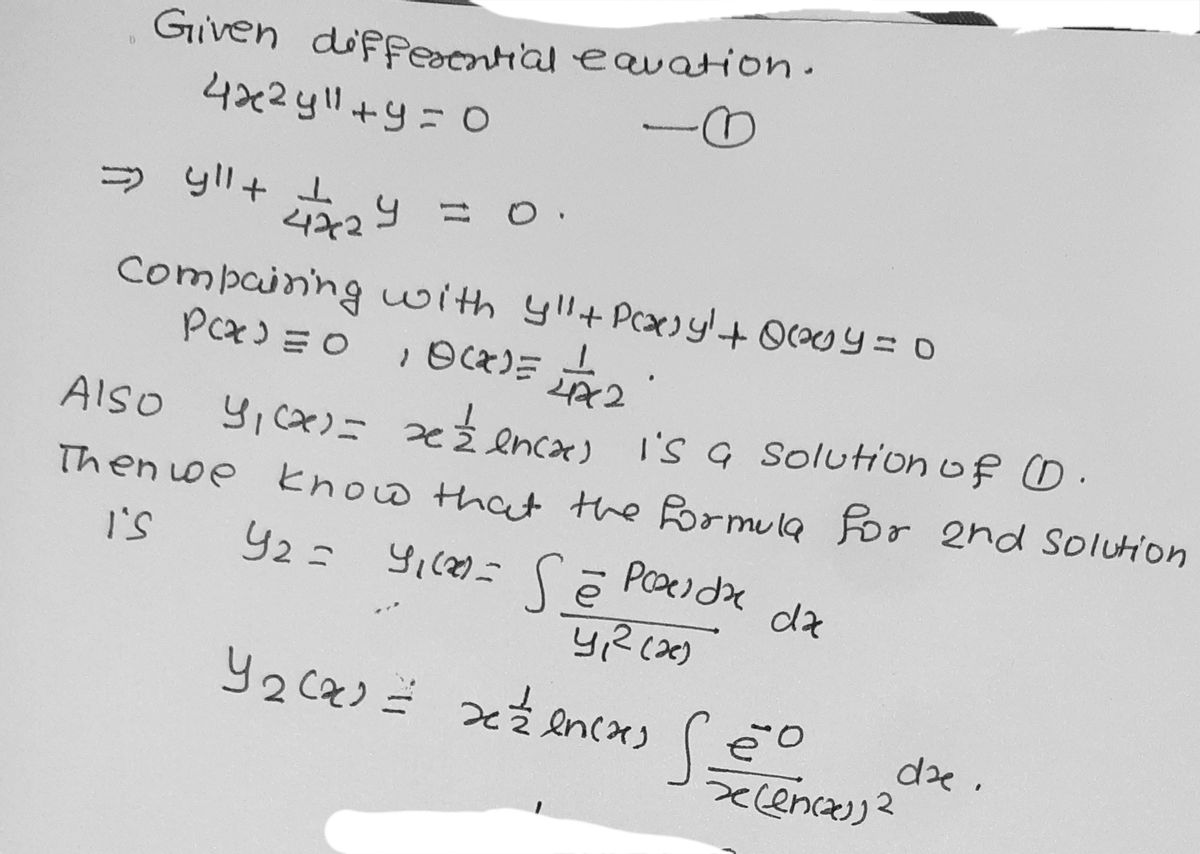 Given differential eauation.
4x2y'' + y = 0 —①
⇒ y'' + 1/4x2 y = 0.
Compairing with y'' + P(x)y' + Q(x)y = 0
P(x) ≡ 0 , Q(x) ≡ 1/4x2.
Also y₁(x) = x^1/2 ln(x) is a solution of ①.
Then we know that the formula for 2nd solution
is y₂ = y₁(x) = ∫ e^- P(x)dx / y₁²(x) dx
y₂(x) = x^1/2 ln(x) ∫ e^-0 / x(ln(x))² dx.